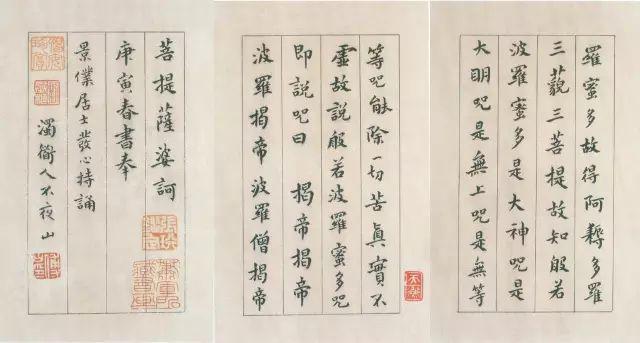 羅蜜多故得阿耨多羅
三藐三菩提故知般若
波羅蜜多是大神咒是
大明咒是無上咒是無等
等咒能除一切苦真實不
虛故說般若波羅蜜多咒
即說咒曰 揭帝揭帝
波羅揭帝波羅僧揭帝
菩提薩婆訶
庚寅春書奉
景僕居士發心持誦
濁衜人不夜山